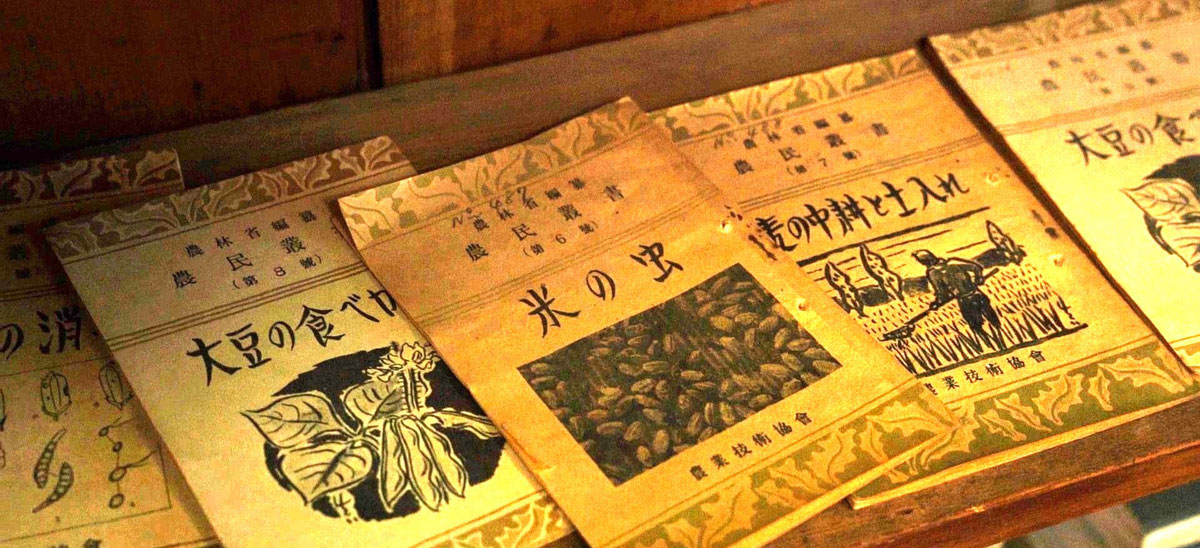 の消
農林省編纂
農民叢書
(第8號)
大豆の食べか
農林省編纂
農民叢書
(第6號)
米の虫
農業技術協會
農林省編纂
農民叢書
(第7號)
麦の中耕と土入れ
農業技術協會
農林省編纂
農民叢書
大豆の食べ